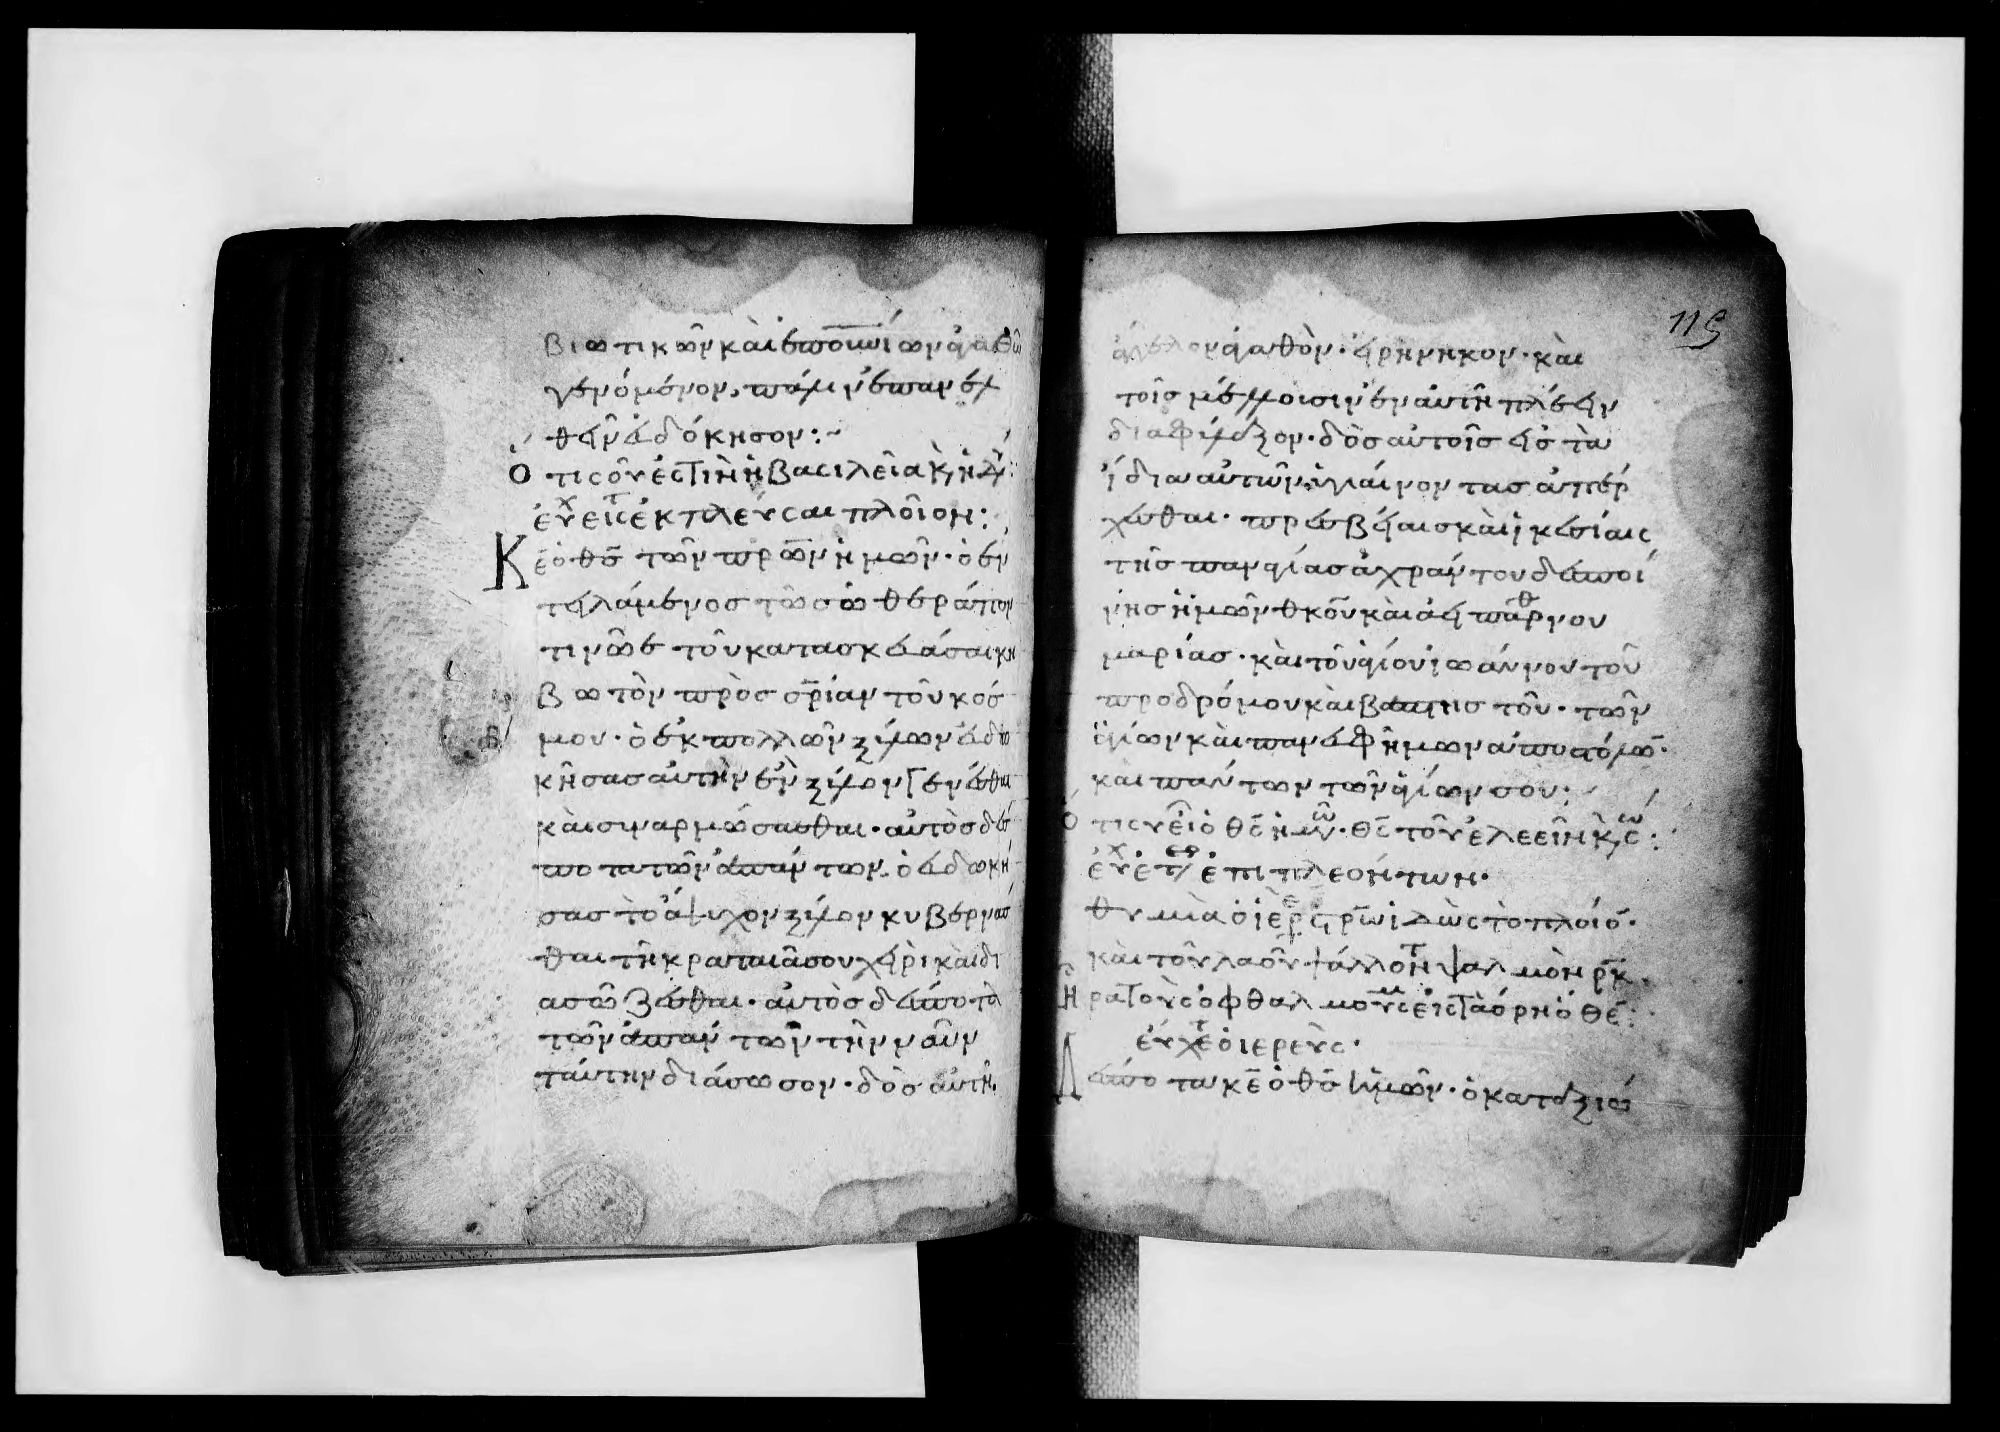 βιωτικῶν καὶ ἐπουρανίων ἀγαθῶ
γενόμενον, πάλιν ἐπανελ
θεῖν εὐδόκησον:~
Ὅτις οῦ ἐστὶν ἡ βασιλεῖα κ, ἡ δύ:
εὐχ εἰς τ ἐκπλεύσαι πλοῖον:
Κε ὁ θς τῶν πρων ἡμῶν· ὁ ἐν
τειλάμενος τῶ σῶ θεράπον
τι νῶε τοῦ κατασκευάσαι κη
βωτὸν πρὸς σρίαν τοῦ κόσ
μου· ὁ ἐκ πολλῶν ξύλων εὐδο
κήσας αὐτὴν ἐν ξύλον γενέσθαι
καὶ συναρμώσασθαι· αὐτὸς δέσ
ποτα τῶν ἁπάντων ὁ εὐδωκή
σας τὸ ἄψυχον ξύλον κυβερνάσ
θαι τῇ κραταιᾶ σου χειρὶ καὶ δι
ασώζεσθαι· αὐτὸς δέσποτα
τῶν ἁπάντων τὴν ναῦν
ταύτην διάσωσον· δὸς αὐτῇ
ἄγγελον ἀγαθὸν· εἰρηνηκον· καὶ
τοῖς μέλλουσιν ἐν αὐτῇ πλέειν
διαφύλαξον· δὸς αὐτοῖς εἰς τὰ
ἴδια αὐτῶν ὑγιαίνοντας ἀπέρ
χεσθαι· πρεσβείαις καὶ ἱκεσίαις
τῆς παναγίας ἀχράντου δεσποί
νης ἡμῶν θκου καὶ ἀεὶ παρθνου
μαρίας· καὶ τοῦ ἁγίου ἰωάννου τοῦ
προδρόμου καὶ βαπτιστοῦ· τῶν
ἁγίων καὶ πανευφήμων ἀποστόλω·
καὶ πάντων τῶν ἁγίων σου:
Ὅτις υ εἶ ὁ θς ἡμῶν· θς τοῦ ἐλεεῖν κ, σω:
εὐχ ἑτ/ ἐπι πλεόντων·
θυμιὰ ὁ ἱερεὺς
καὶ τοῦ λαοῦ ψάλλοντ ψαλμὸν ρκ
Ἦρα τοὺς ὀφθαλμούς μ εἰς τὰ όρη ὁ θε:
εὔχετ ὁ ἱερεὺς·
Δέσποτα κε ὁ θς ἡμῶν· ὁ καταξιώ